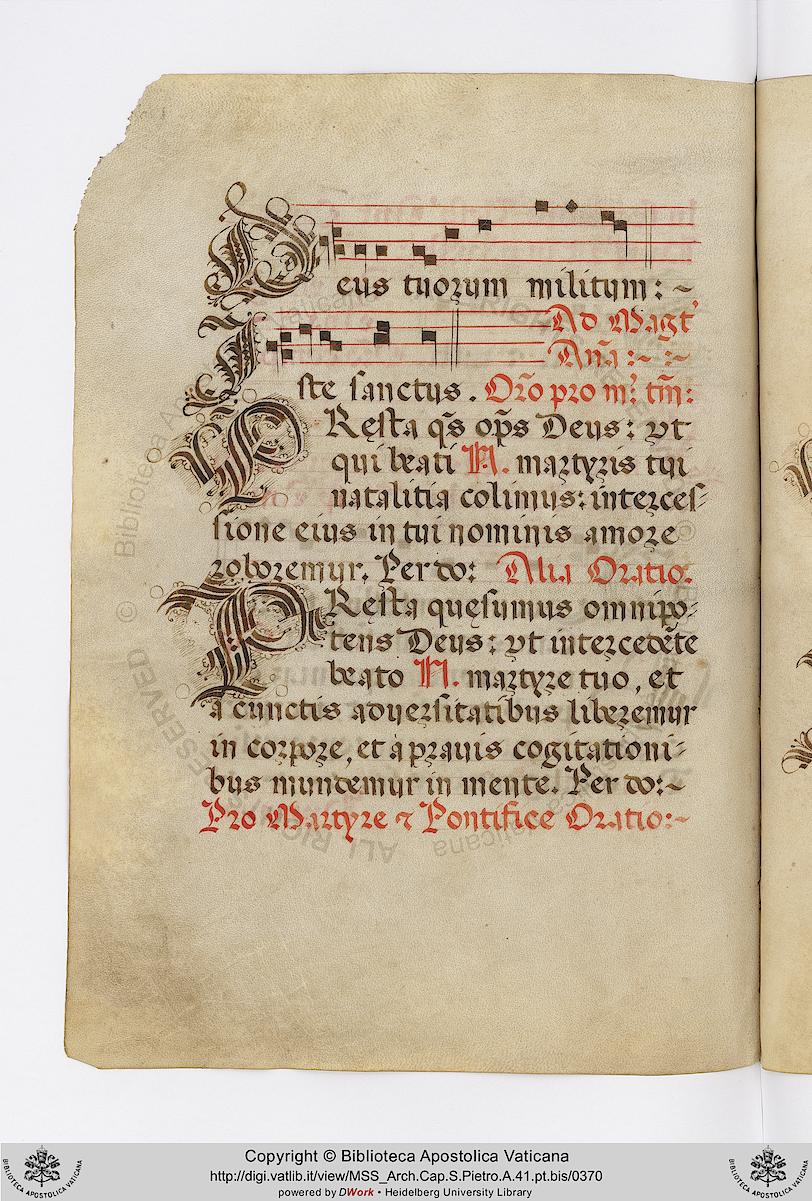 Deus tuorum militum: ~
Ad Magt'
Aña :~ :~
Iste sanctus. Orõ pro mr̃. tm̃:
PRęsta qs̃ ops̃ Deus: vt
qui beati N. martyris tui
natalitia colimus: interces-
sione eius in tui nominis amore
roboremur. Per do: Alia Oratio.
PRęsta quęsumus omnipo-
tens Deus: vt intercedẽte
beato N. martyre tuo, et
a cunctis aduersitatibus liberemur
in corpore, et a prauis cogitationi-
bus mundemur in mente. Per do:~
Pro Martyre & Pontifice Oratio:~
© Biblioteca Apostolica Vaticana ALL RIGHTS RESERVED
Copyright © Biblioteca Apostolica Vaticana
http://digi.vatlib.it/view/MSS_Arch.Cap.S.Pietro.A.41.pt.bis/0370
powered by DWork • Heidelberg University Library
BIBLIOTECA APOSTOLICA VATICANA
BIBLIOTECA APOSTOLICA VATICANA